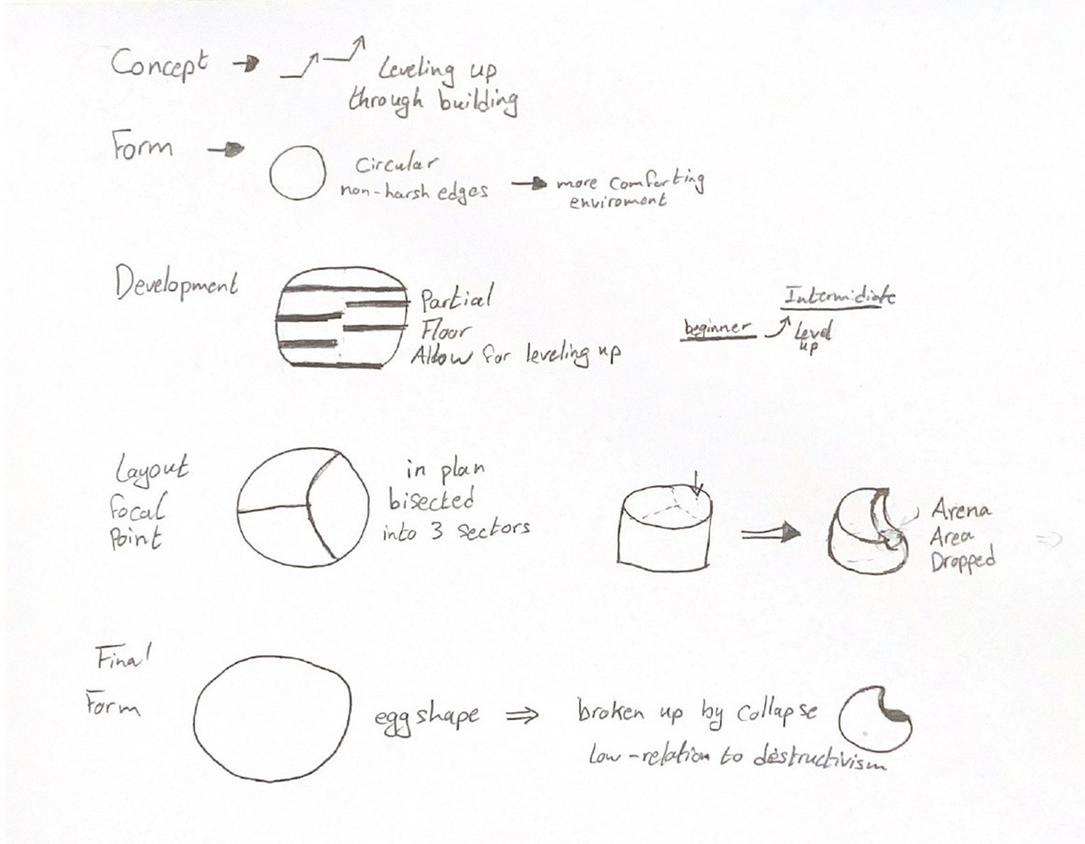 Concept → Leveling up
through building
Form → Circular
non-harsh edges → more comforting
enviroment
Development
Partial
Floor
Allow for leveling up
beginner
Intermidiate
Level
up
Layout
focal
Point
in plan
bisected
into 3 sectors
Arena
Area
Dropped
Final
Form
egg shape ⇒ broken up by Collapse
low-relation to destructivism